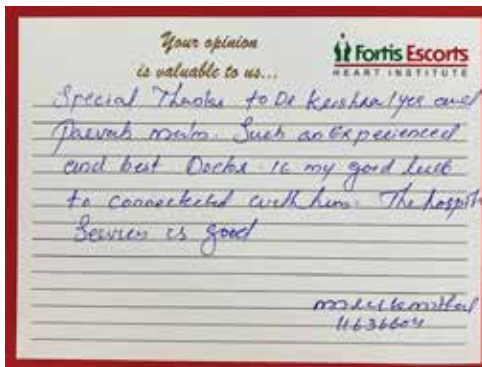 Your opinion
is valuable to us...
Fortis Escorts
HEART INSTITUTE
Special Thanks to Dr Krishna Iyer and
mam. Such an Experienced
and best Doctor is my good luck
to connected with him. The hospit
Services is good
11636604